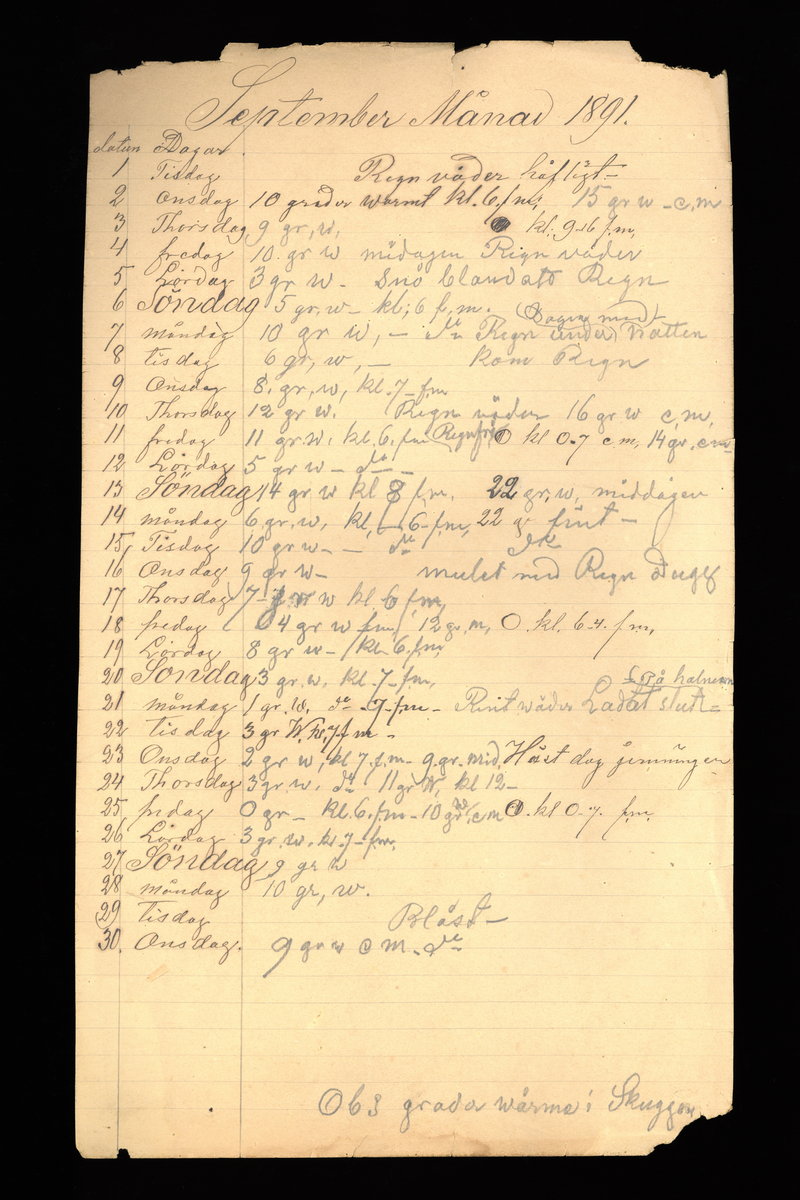 September Månad 1891.
datum Dagar.
1 Tisdag Regn väder häfligt –
2 onsdag 10 grader warmt kl. 6. f.m; 15 gr w – e.m
3 Thorsdag 9 gr, w, kl. 9-16 f.m,
4 fredag 10. gr w midagen Regn väder
5 Lördag 3 gr w – Snö blandatd Regn
6 Söndag 5 gr, w – kl; 6 f, m.
(Dagen med)
7 måndag 10 gr w, – do Regn under Natten
8 tisdag 6 gr, w, – kom Regn
9 Onsdag 8. gr, w, kl. 7 – f.m
10 Thorsdag 12 gr w. Regn väder 16 gr w e,m,
11 fredag 11 gr. w. kl. 6. f.m kl 0-7 e.m, 14 gr. e.m
12 Lördag 5 gr w – do –
13 Söndag 14 gr w kl 8 f.m. 22 gr, w, middagen
14 måndag 6 gr, w, kl, – 6 – f.m, 22 gr fint –
15 Tisdag 10 gr w – – do
16 Onsdag 9 gr w – mulet med Regn
17 Thorsdag 7 – gr w kl 6 f.m,
18 fredag 4 gr w f.m/ 12 gr, m, O. kl. 6-4. f.m,
19 Lördag 8 gr w – kl. 6. f.m
20 Söndag 3 gr. w, kl. 7 – f.m,
På halmen
21 måndag 1 gr. w. do – 7 – f.m – Rint wäder Ladat slut =
22 tisdag 3 gr W. kl, 7 f m –
23 Onsdag 2 gr w, kl 7 f.m – 9 gr. mid, Höst dag jemningen
24 Thorsdag 3 gr w. do 11 gr w, kl 12 –
25 fredag 0 gr – kl. 6. f.m – 10 gr w, e m O. kl 0-7. f.m.
26 Lördag 3 gr. w. kl. 7 – f.m,
27 Söndag 9 gr w
28 måndag 10 gr, w.
29 Tisdag Blåst –
30. Onsdag. 9 gr w e m. do
Obs grader wärme i Skuggan